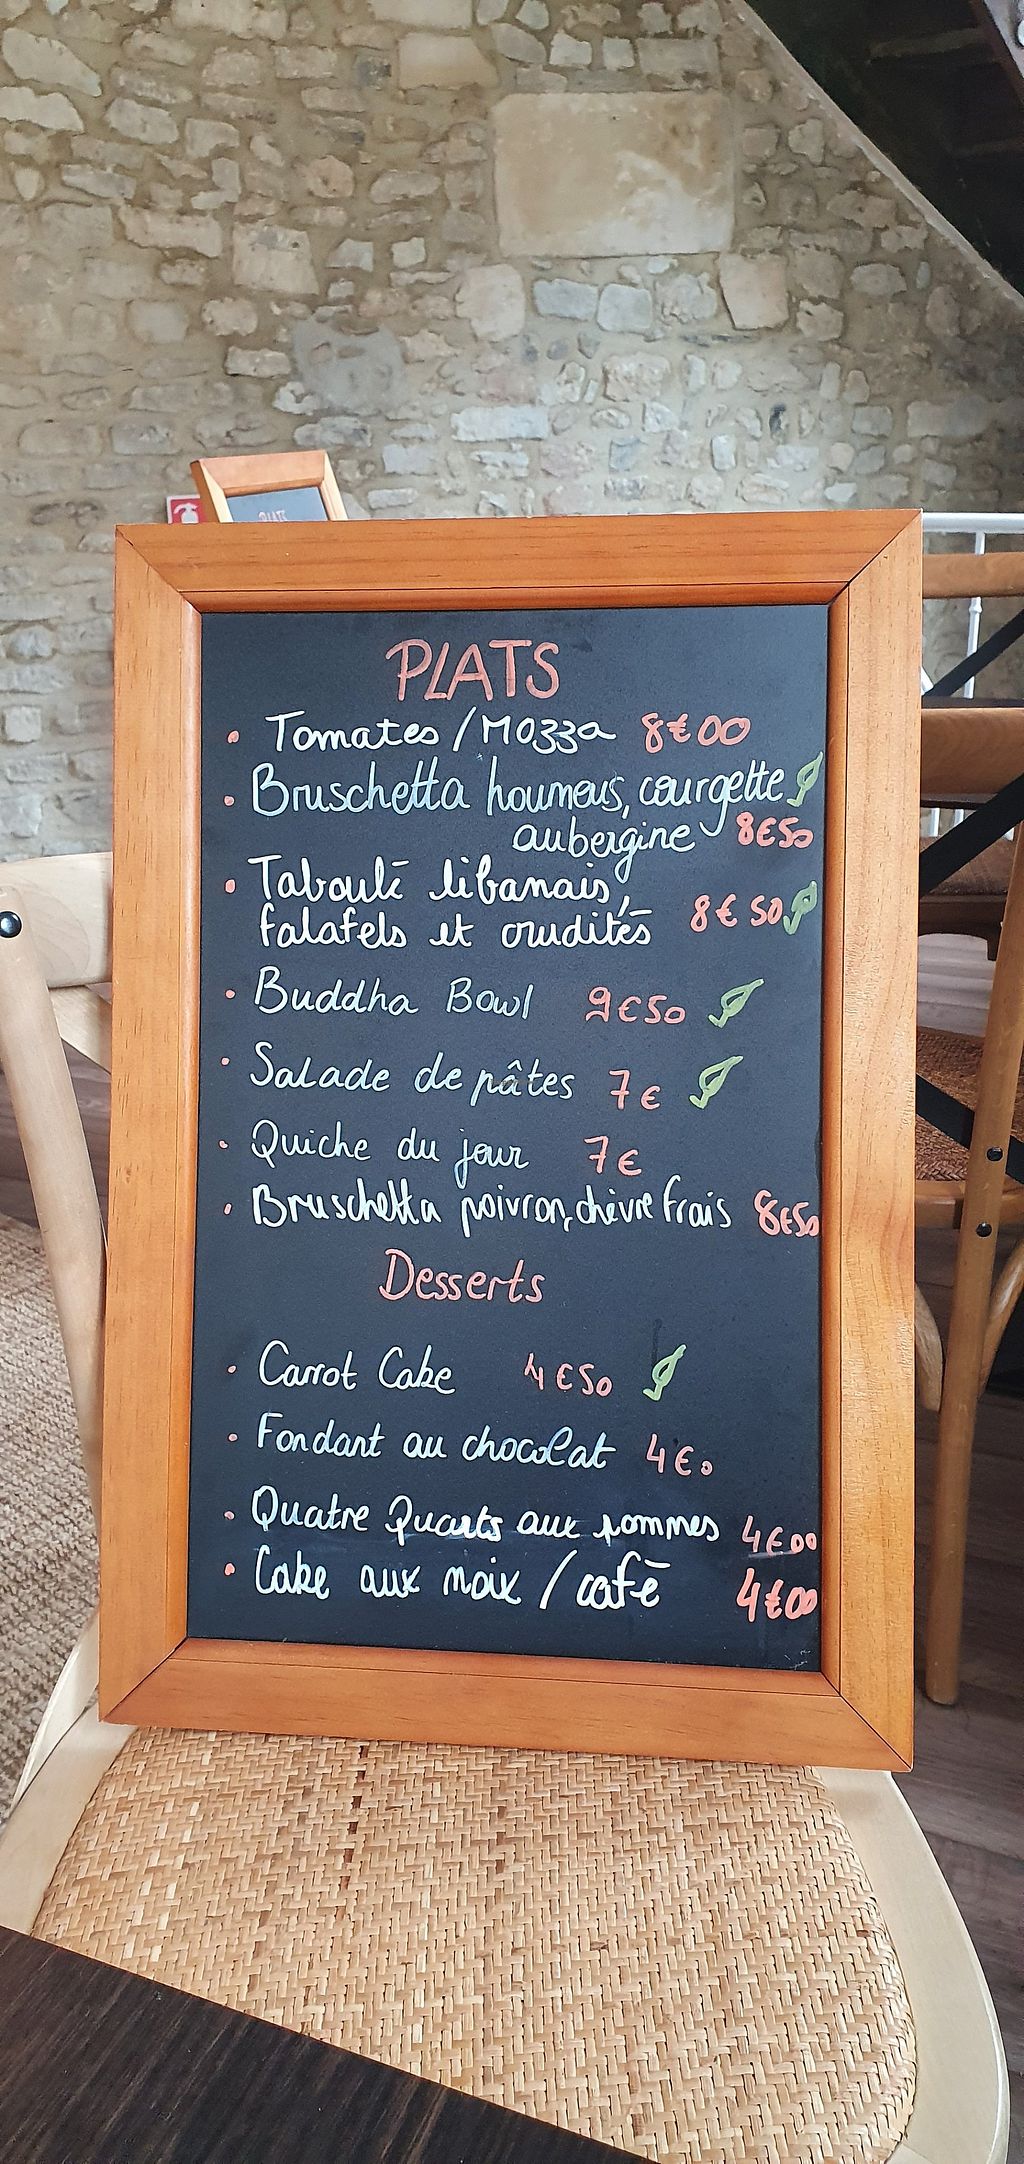 PLATS
PLATS
• Tomates / Mozza 8€00
• Bruschetta houmous, courgette
aubergine 8€50
• Taboulé libanais,
falafels et crudités 8€50
• Buddha Bowl 9€50
• Salade de pâtes 7€
• Quiche du jour 7€
• Bruschetta poivron, chèvre frais 8€50
Desserts
• Carrot Cake 4€50
• Fondant au chocolat 4€0
• Quatre Quarts aux pommes 4€00
• Cake aux noix / café 4€00